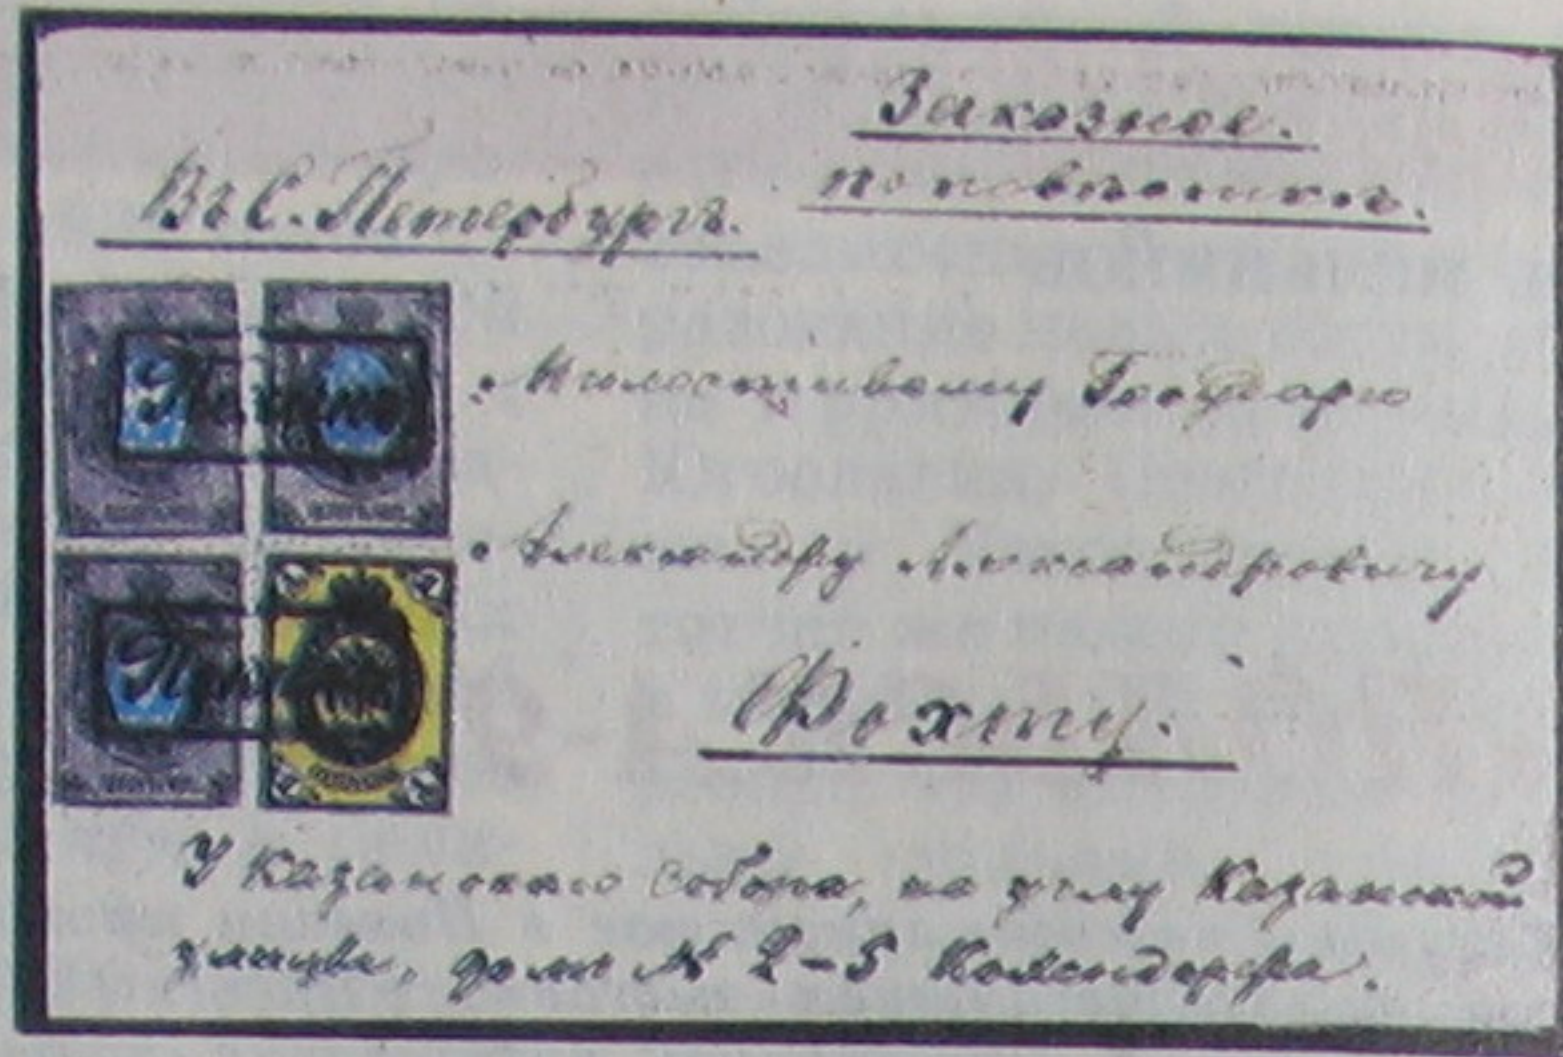 Заказное.
Въ С. Петербургъ.
Милостивому Государю
Александру Александровичу
Фохту.
У Казанскаго Собора, на углу Казанской
улицы, домъ № 2-5